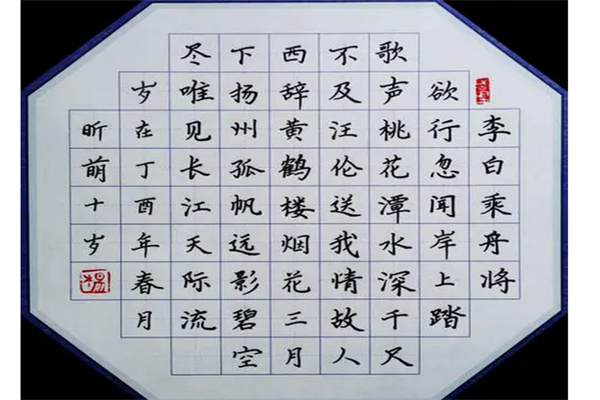 李白乘舟将
欲行忽闻岸上踏
歌声桃花潭水深千尺
不及汪伦送我情故人
西辞黄鹤楼烟花三月
下扬州孤帆远影碧空
尽唯见长江天际流
岁在丁酉年春月
昕萌十岁